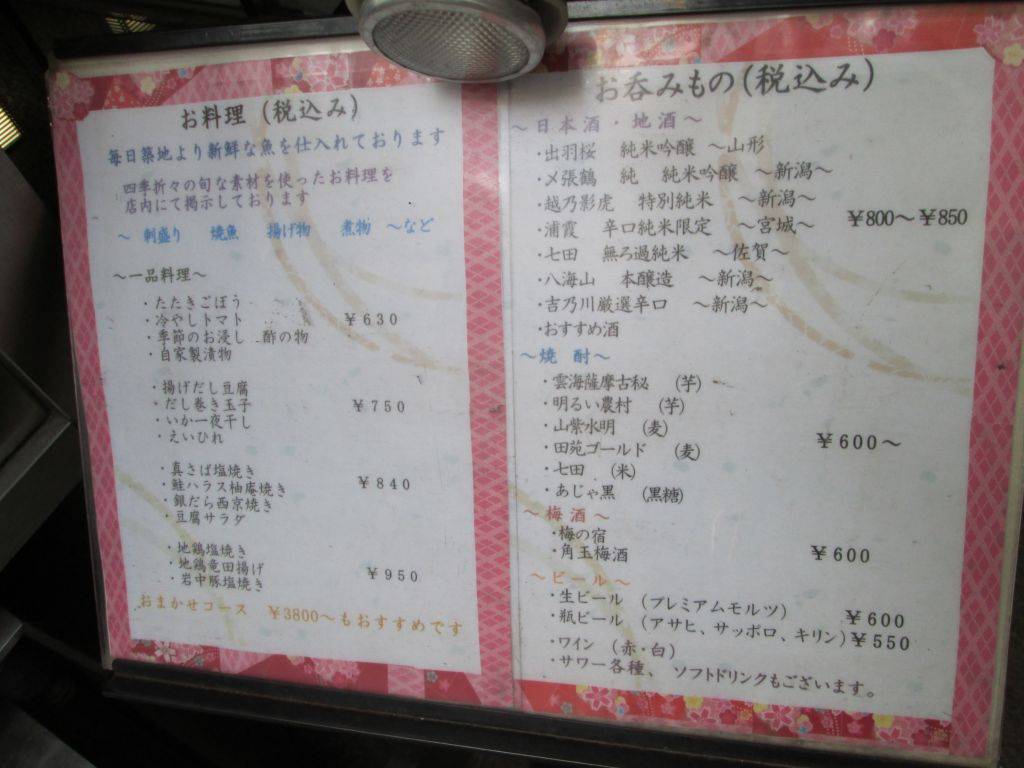 お料理（税込み）
毎日築地より新鮮な魚を仕入れております
四季折々の旬な素材を使ったお料理を
店内にて掲示しております
～ 刺盛り 焼魚 揚げ物 煮物 ～など
～一品料理～
・たたきごぼう
・冷やしトマト ￥630
・季節のお浸し 酢の物
・自家製漬物
・揚げだし豆腐
・だし巻き玉子 ￥750
・いか一夜干し
・えいひれ
・真さば塩焼き
・鮭ハラス柚庵焼き ￥840
・銀だら西京焼き
・豆腐サラダ
・地鶏塩焼き
・地鶏竜田揚げ ￥950
・岩中豚塩焼き
おまかせコース ￥3800～もおすすめです
お呑みもの（税込み）
～日本酒・地酒～
・出羽桜 純米吟醸 ～山形
・〆張鶴 純 純米吟醸 ～新潟～
・越乃影虎 特別純米 ～新潟～
・浦霞 辛口純米限定 ～宮城～ ￥800～￥850
・七田 無ろ過純米 ～佐賀～
・八海山 本醸造 ～新潟～
・吉乃川厳選辛口 ～新潟～
・おすすめ酒
～焼 酎～
・雲海薩摩古秘 (芋)
・明るい農村 (芋)
・山紫水明 (麦)
・田苑ゴールド (麦) ￥600～
・七田 (米)
・あじゃ黒 (黒糖)
～梅酒～
・梅の宿
・角玉梅酒 ￥600
～ビール～
・生ビール （プレミアムモルツ） ￥600
・瓶ビール （アサヒ、サッポロ、キリン）￥550
・ワイン （赤・白）
・サワー各種、 ソフトドリンクもございます。